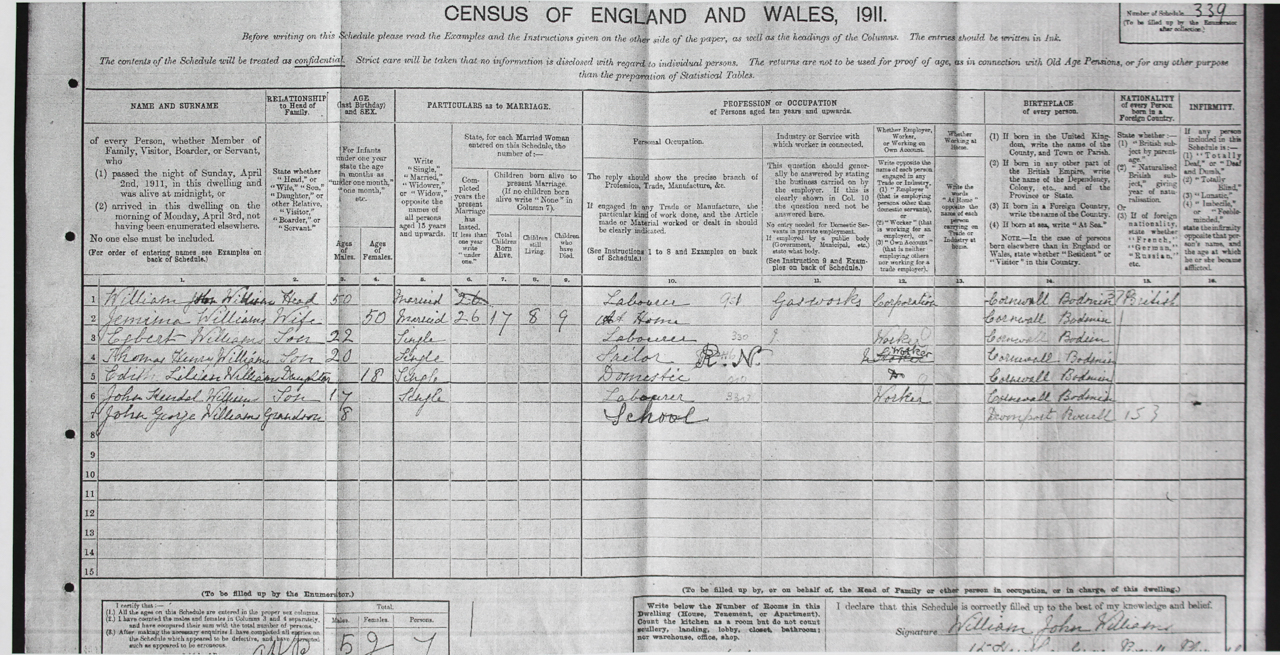 CENSUS OF ENGLAND AND WALES, 1911.
Number of Schedule 339
(To be filled up by the Enumerator after collection.)
Before writing on this Schedule please read the Examples and the Instructions given on the other side of the paper, as well as the headings of the Columns. The entries should be written in Ink.
The contents of the Schedule will be treated as confidential. Strict care will be taken that no information is disclosed with regard to individual persons. The returns are not to be used for proof of age, as in connection with Old Age Pensions, or for any other purpose
than the preparation of Statistical Tables.
NAME AND SURNAME
of every Person, whether Member of
Family, Visitor, Boarder, or Servant,
who
(1) passed the night of Sunday, April
2nd, 1911, in this dwelling and
was alive at midnight, or
(2) arrived in this dwelling on the
morning of Monday, April 3rd, not
having been enumerated elsewhere.
No one else must be included.
(For order of entering names see Examples on
back of Schedule.)
RELATIONSHIP
to Head of
Family.
State whether
"Head," or
"Wife," "Son,"
"Daughter," or
other Relative,
"Visitor,"
"Boarder," or
"Servant."
AGE
(last Birthday)
and SEX.
For Infants
under one year
state the age
in months as
"under one month,"
"one month,"
etc.
Ages of Males.
Ages of Females.
PARTICULARS as to MARRIAGE.
Write
"Single,"
"Married,"
"Widower,"
or "Widow,"
opposite the
names of
all persons
aged 15 years
and upwards.
State, for each Married Woman
entered on this Schedule, the
number of:—
Completed years the present Marriage has lasted.
If less than one year write "under one."
Children born alive to
present Marriage.
(If no children born
alive write "None" in
Column 7).
Total Children Born Alive.
Children still Living.
Children who have Died.
PROFESSION or OCCUPATION
of Persons aged ten years and upwards.
Personal Occupation.
The reply should show the precise branch of
Profession, Trade, Manufacture, &c.
If engaged in any Trade or Manufacture, the
particular kind of work done, and the Article
made or Material worked or dealt in should
be clearly indicated.
(See Instructions 1 to 8 and Examples on back
of Schedule.)
Industry or Service with
which worker is connected.
This question should generally
be answered by stating
the business carried on by
the employer. If this is
clearly shown in Col. 10
the question need not be
answered here.
No entry needed for Domestic Servants
in private employment.
If employed by a public body
(Government, Municipal, etc.)
state what body.
(See Instruction 9 and Examples
on back of Schedule.)
Whether Employer,
Worker,
or Working on
Own Account.
Write opposite the
name of each person
engaged in any
Trade or Industry,
(1) "Employer"
(that is employing
persons other than
domestic servants),
or
(2) "Worker" (that
is working for an
employer), or
(3) "Own Account"
(that is neither
employing others
nor working for a
trade employer).
Whether
Working at
Home.
Write the words "At Home" opposite the name of each person carrying on Trade or Industry at Home.
BIRTHPLACE
of every person.
(1) If born in the United Kingdom,
write the name of the
County, and Town or Parish.
(2) If born in any other part of
the British Empire, write
the name of the Dependency,
Colony, etc., and of the
Province or State.
(3) If born in a Foreign Country,
write the name of the Country.
(4) If born at sea, write "At Sea."
NOTE.—In the case of persons
born elsewhere than in England or
Wales, state whether "Resident" or
"Visitor" in this Country.
NATIONALITY
of every Person
born in a
Foreign Country.
State whether:—
(1) "British subject by parentage."
(2) "Naturalised British subject," giving year of naturalisation.
Or
(3) If of foreign nationality, state whether "French," "German," "Russian," etc.
INFIRMITY.
If any person included in this Schedule is:—
(1) "Totally Deaf," or "Deaf and Dumb,"
(2) "Totally Blind,"
(3) "Lunatic,"
(4) "Imbecile," or "Feeble-minded,"
state the infirmity opposite that person's name, and the age at which he or she became afflicted.
1. 2. 3. 4. 5. 6. 7. 8. 9. 10. 11. 12. 13. 14. 15. 16.
1 William John Williams Head 50 Married 26 Labourer Gasworks Corporation Cornwall Bodmin British
2 Jemima Williams Wife 50 Married 26 17 8 9 At Home Cornwall Bodmin
3 Egbert Williams Son 22 Single Labourer Worker Cornwall Bodmin
4 Thomas Henry Williams Son 20 Single Sailor R.N. Worker Cornwall Bodmin
5 Edith Lilian Williams Daughter 18 Single Domestic Cornwall Bodmin
6 John Williams Son 17 Single Labourer Worker Cornwall Bodmin
7 John George Williams Grandson 8 School Devonport 153
8
9
10
11
12
13
14
15
(To be filled up by the Enumerator.)
I certify that:—
(1.) All the ages on this Schedule are entered in the proper sex columns.
(2.) I have counted the males and females in Columns 3 and 4 separately,
and have compared their sum with the total number of persons.
(3.) After making the necessary enquiries I have completed all entries on
the Schedule which appeared to be defective, and have corrected
such as appeared to be erroneous.
Total.
Males. Females. Persons.
5 2 7
(To be filled up by, or on behalf of, the Head of Family or other person in occupation, or in charge, of this dwelling.)
Write below the Number of Rooms in this
Dwelling (House, Tenement, or Apartment).
Count the kitchen as a room but do not count
scullery, landing, lobby, closet, bathroom;
nor warehouse, office, shop.
I declare that this Schedule is correctly filled up to the best of my knowledge and belief.
Signature William John Williams